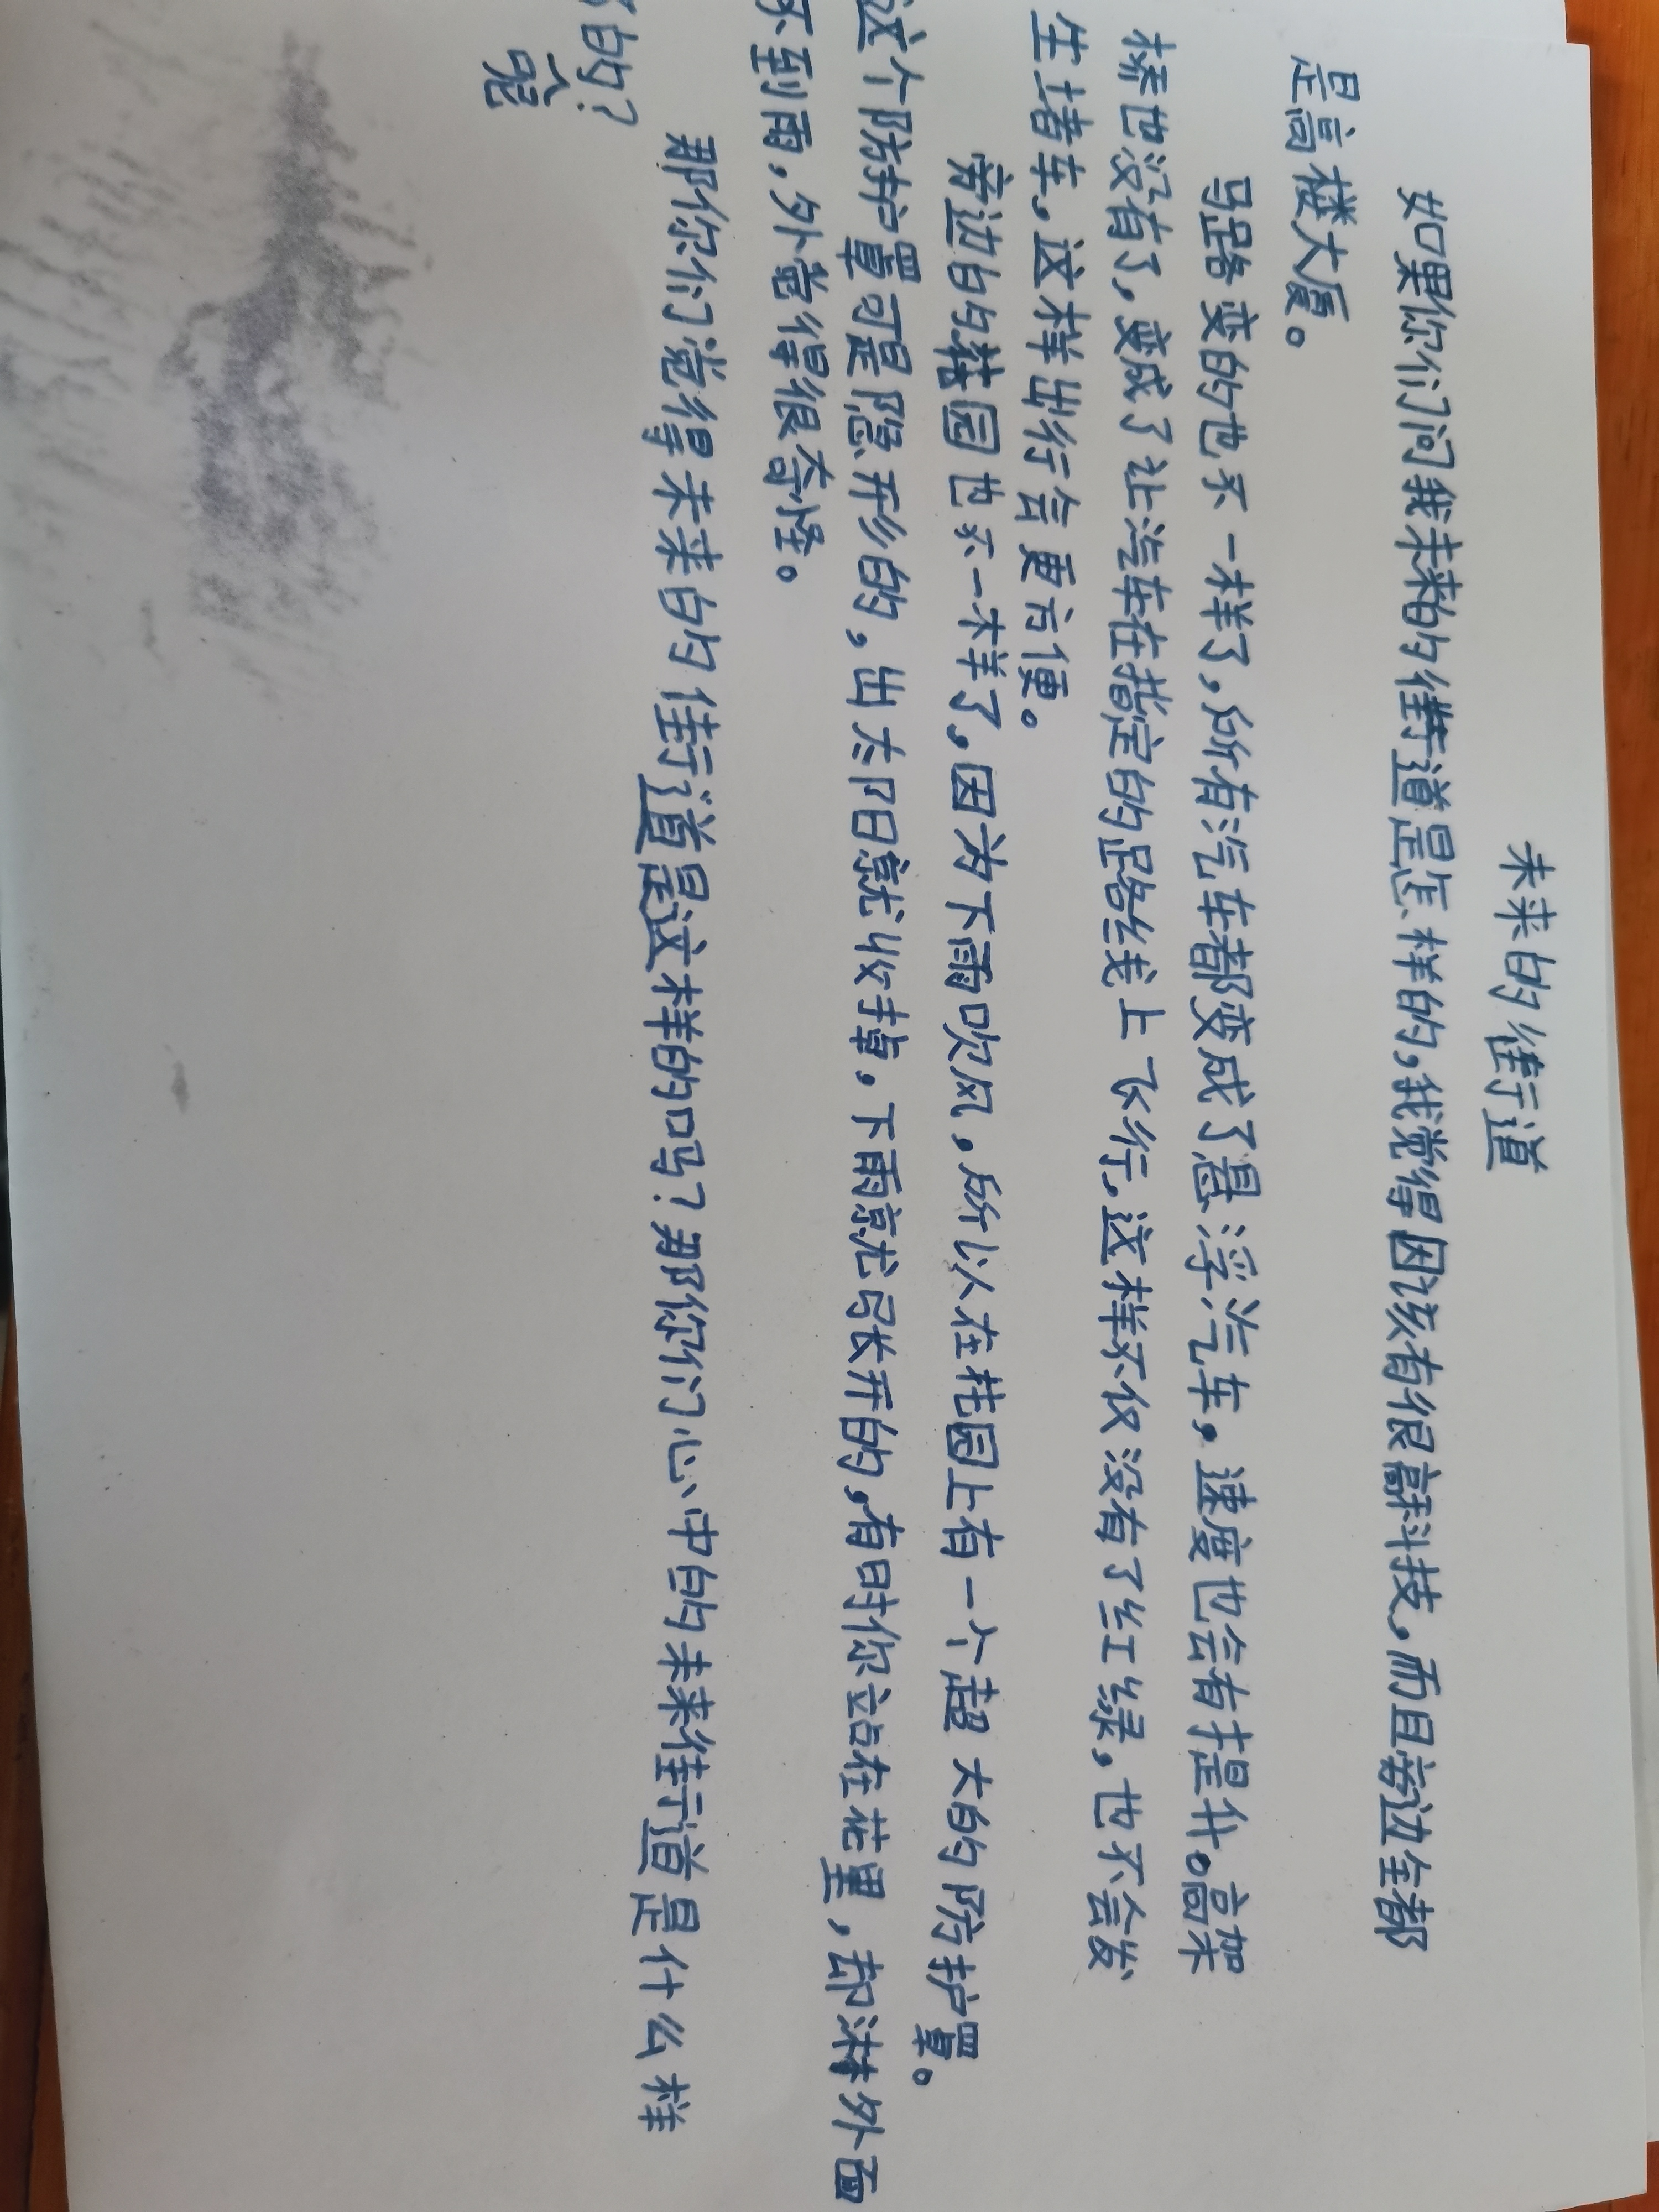 未来的街道
如果你们问我未来的街道是怎样的，我觉得因该有很高科技，而且旁边全都
是高楼大厦。
马路变的也不一样了，所有汽车都变成了悬浮汽车，速度也会有提升。高架
桥也没有了，变成了让汽车在指定的路线上飞行，这样不仅没有了红绿，也不会发
生堵车，这样出行会更方便。
旁边的花园也不一样了，因为下雨吹风，所以在花园上有一个超大的防护罩。
这个防护罩可是隐形的，出太阳就收掉，下雨就张开的，有时你站在花里，却淋外面
不到雨，外觉得很奇怪。
那你们觉得未来的街道是这样的吗？那你们心中的未来街道是什么样
的？